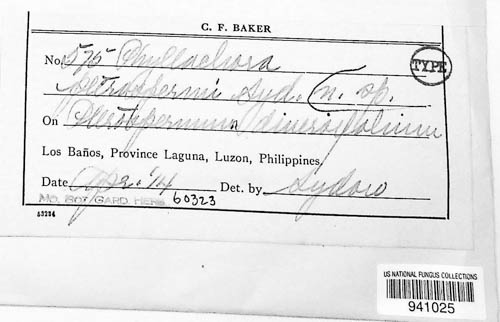 C. F. BAKER
No. 575 Phyllachora
TYPE
Syd. n. sp.
On Pterospermum diversifolium
Los Baños, Province Laguna, Luzon, Philippines
Date Ap 2. '14 Det. by Sydow
MO. BOT. GARD. HERB. 60323
53234
US NATIONAL FUNGUS COLLECTIONS
941025